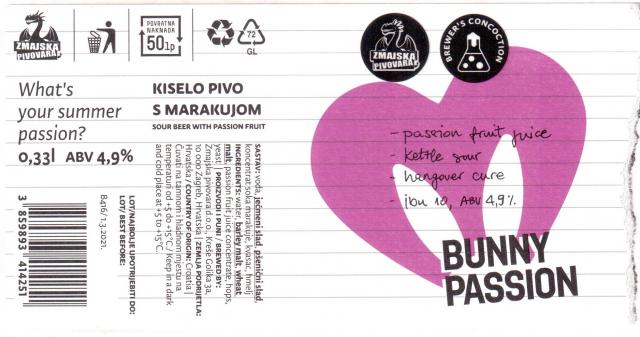 ZMAJSKA
PIVOVARA
POVRATNA
NAKNADA
50lp
72
GL
What's
your summer
passion?
0,33l ABV 4,9%
KISELO PIVO
S MARAKUJOM
SOUR BEER WITH PASSION FRUIT
SASTAV: voda, ječmeni slad, pšenični slad,
koncentrat soka marakuje, kvasac, hmelj
INGREDIENTS: water, barley malt, wheat
malt, passion fruit juice concentrate, hops,
yeast | PROIZVODI I PUNI / BREWED BY:
Zmajska pivovara d.o.o., Kreše Golika 3a,
10 000 Zagreb, Hrvatska | ZEMLJA PODRIJETLA:
Hrvatska / COUNTRY OF ORIGIN: Croatia |
Čuvati na tamnom i hladnom mjestu na
temperaturi od +5 do +15°C / Keep in a dark
and cold place at +5 to +15°C.
LOT/NAJBOLJE UPOTRIJEBITI DO:
LOT/ BEST BEFORE:
B416/ 1.3.2021.
3 859893 414251
ZMAJSKA
PIVOVARA
BREWER'S CONCOCTION
- passion fruit juice
- kettle sour
- hangover cure
- ibu 10, ABV 4,9%.
BUNNY
PASSION